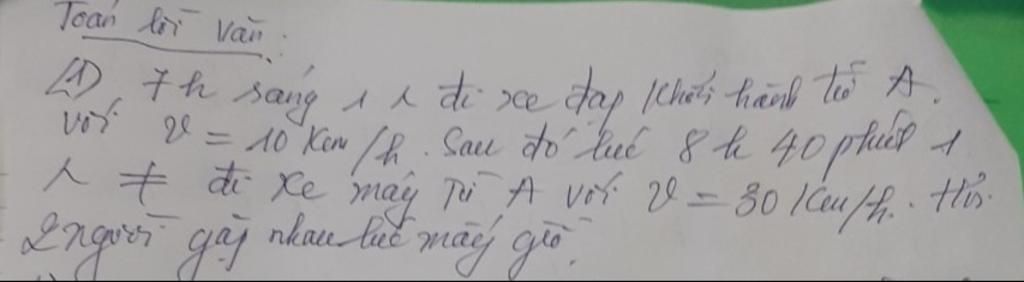 Toán lời văn.
(1) 7h sáng 1 λ đi xe đạp khởi hành từ A.
với v = 10 Km/h. Sau đó lúc 8h 40 phút 1
λ ≠ đi xe máy từ A với v = 30 Km/h. Hỏi
2 người gặp nhau lúc mấy giờ.